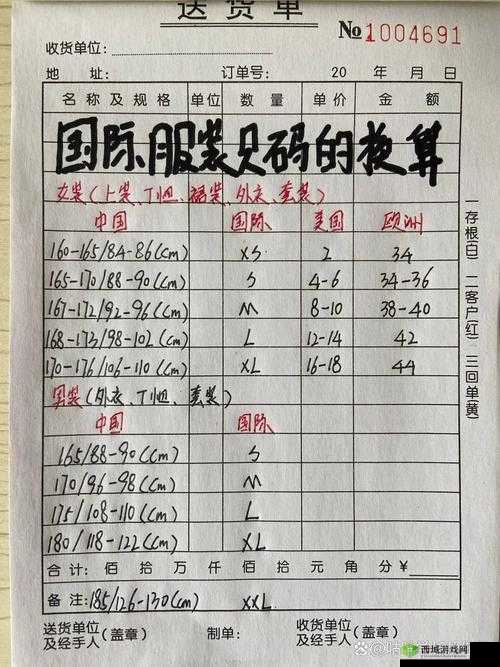 送货单
№1004691
收货单位:
地 址: 订单号: 20 年 月 日
名称及规格 单位 数量 单价 金额
国际服装尺码的换算
女装(上装、T恤、裙装、外衣、套装)
中国 国际 美国 欧洲
160-165/84-86(cm) XS 2 34
165-170/88-90(cm) S 4-6 34-36
167-172/92-96(cm) M 8-10 38-40
168-173/98-102(cm) L 12-14 42
170-176/106-110(cm) XL 16-18 44
男装(外衣、T恤、套装)
中国 国际
165/88-90(cm) S
170/96-98(cm) M
175/108-110(cm) L
180/118-122(cm) XL
合计: 佰 拾 万 仟 佰 拾 元 角 分 ¥
备注: 185/126-130(cm) XXL
送货单位及经手人(盖章) 制单: 收货单位及经手人
一存根(白) 二客户(红) 三回单(黄)
西域游戏网